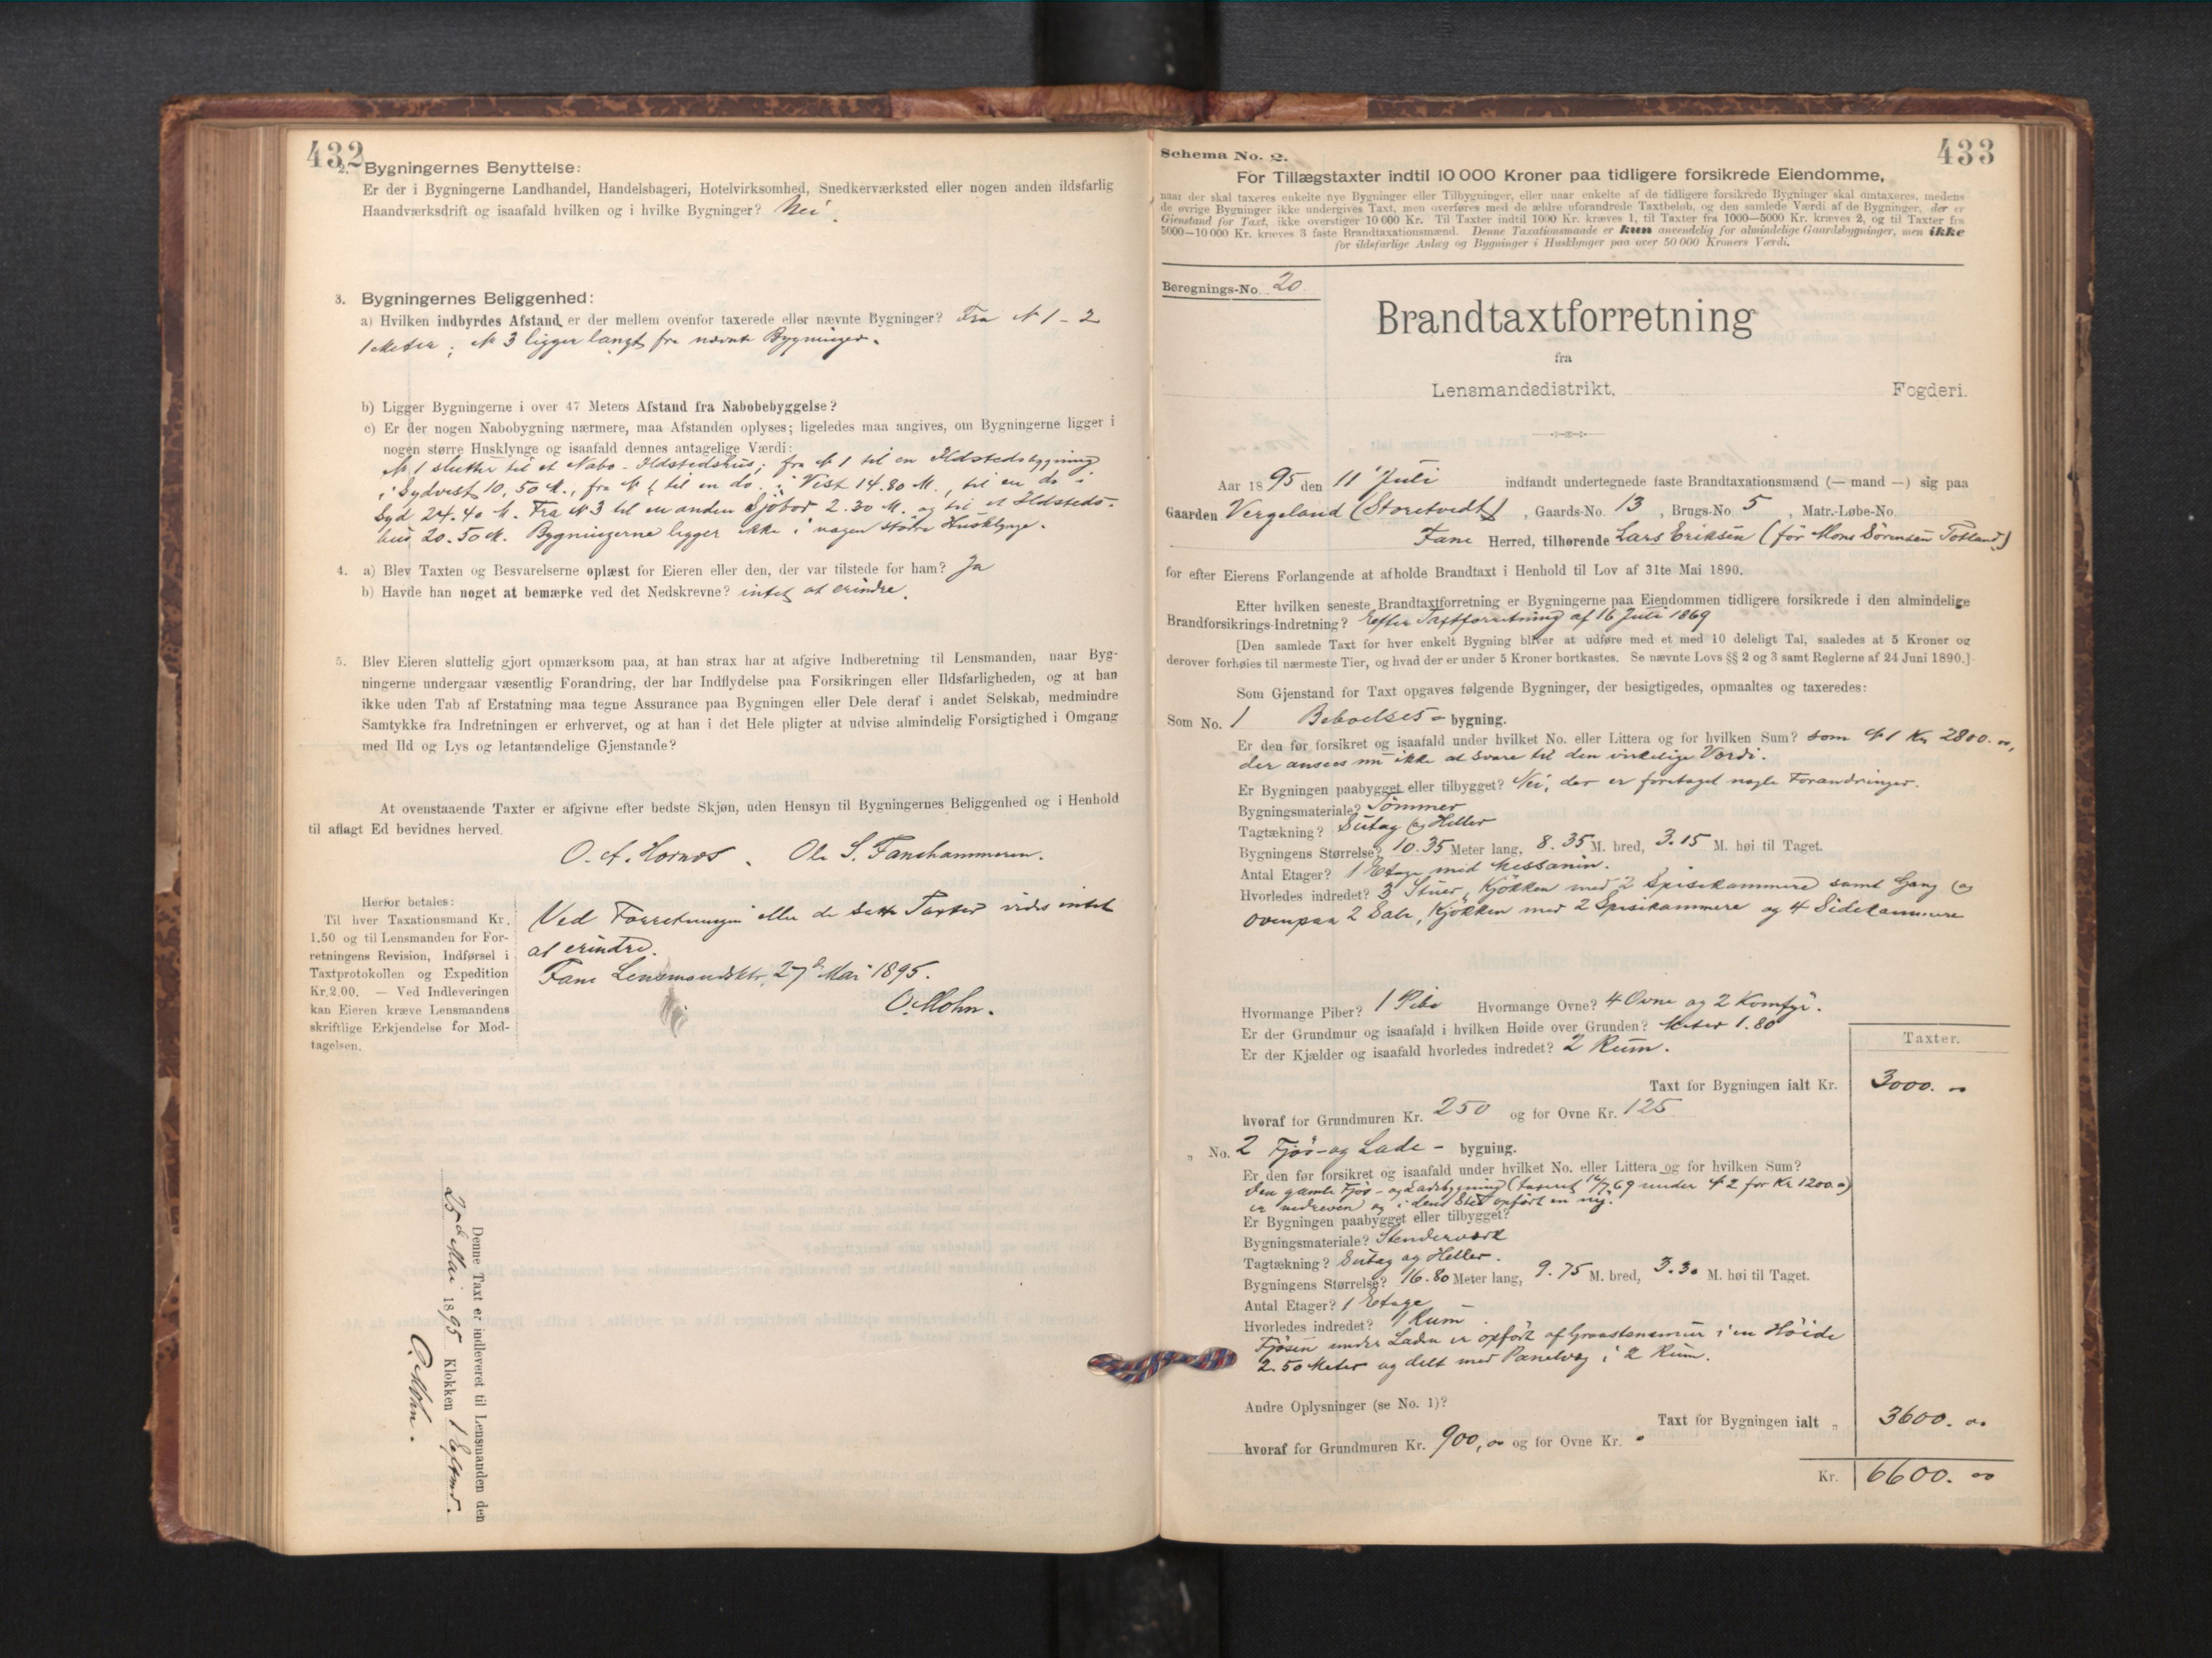 432
2. Bygningernes Benyttelse:
Er der i Bygningerne Landhandel, Handelsbageri, Hotelvirksomhed, Snedkerværksted eller nogen anden ildsfarlig
Haandværksdrift og isaafald hvilken og i hvilke Bygninger? Nei.
3. Bygningernes Beliggenhed:
a) Hvilken indbyrdes Afstand er der mellem ovenfor taxerede eller nævnte Bygninger? Fra № 1 - 2
1 Meter; № 3 ligger langt fra nævnte Bygninger.
b) Ligger Bygningerne i over 47 Meters Afstand fra Nabobebyggelse?
c) Er der nogen Nabobygning nærmere, maa Afstanden oplyses; ligeledes maa angives, om Bygningerne ligger i
nogen større Husklynge og isaafald dennes antagelige Værdi:
№ 1 slutter til et Nabo-Ildstedshus; fra № 1 til en Ildstedsbygning
i Sydvest 10,50 M., fra № 1 til en do. i Vest 14.80 M., til en do i
Syd 24.40 M. Fra № 3 til en anden Sjøbod 2.30 M. og til et Ildsteds-
hus 20.50 M. Bygningerne ligger ikke i nogen større Husklynge.
4. a) Blev Taxten og Besvarelserne oplæst for Eieren eller den, der var tilstede for ham? Ja
b) Havde han noget at bemærke ved det Nedskrevne? intet at erindre.
5. Blev Eieren sluttelig gjort opmærksom paa, at han strax har at afgive Indberetning til Lensmanden, naar Byg-
ningerne undergaar væsentlig Forandring, der har Indflydelse paa Forsikringen eller Ildsfarligheden, og at han
ikke uden Tab af Erstatning maa tegne Assurance paa Bygningen eller Dele deraf i andet Selskab, medmindre
Samtykke fra Indretningen er erhvervet, og at han i det Hele pligter at udvise almindelig Forsigtighed i Omgang
med Ild og Lys og letantændelige Gjenstande?
At ovenstaaende Taxter er afgivne efter bedste Skjøn, uden Hensyn til Bygningernes Beliggenhed og i Henhold
til aflagt Ed bevidnes herved.
O. A. Hornæs. Ole S. Fanehammeren.
Herfor betales:
Til hver Taxationsmand Kr.
1.50 og til Lensmanden for For-
retningens Revision, Indførsel i
Taxtprotokollen og Expedition
Kr. 2.00. — Ved Indleveringen
kan Eieren kræve Lensmandens
skriftlige Erkjendelse for Mod-
tagelsen.
Ved Forretningen eller de satte Taxter vides intet
at erindre.
Fane Lensmandsktr, 27de Mai 1895.
O. Mohn.
Denne Taxt er indleveret til Lensmanden den
25de Mai 1895 Klokken 1 Efterm.
O. Mohn.
433
Schema No. 2.
For Tillægstaxter indtil 10 000 Kroner paa tidligere forsikrede Eiendomme,
naar der skal taxeres enkelte nye Bygninger eller Tilbygninger, eller naar enkelte af de tidligere forsikrede Bygninger skal omtaxeres, medens
de øvrige Bygninger ikke undergives Taxt, men overføres med de ældre uforandrede Taxtbeløb, og den samlede Værdi af de Bygninger, der er
Gjenstand for Taxt, ikke overstiger 10 000 Kr. Til Taxter indtil 1000 Kr. kræves 1, til Taxter fra 1000—5000 Kr. kræves 2, og til Taxter fra
5000—10 000 Kr. kræves 3 faste Brandtaxationsmænd. Denne Taxationsmaade er kun anvendelig for almindelige Gaardsbygninger, men ikke
for ildsfarlige Anlæg og Bygninger i Husklynger paa over 50 000 Kroners Værdi.
Beregnings-No. 20
Brandtaxtforretning
fra
Lensmandsdistrikt, Fogderi.
Aar 1895 den 11 Juli indfandt undertegnede faste Brandtaxationsmænd (— mand —) sig paa
Gaarden Vergeland (Storetvedt), Gaards-No. 13, Brugs-No. 5, Matr.-Løbe-No.
Fane Herred, tilhørende Lars Eriksen (før Mons Sørensen Totland)
for efter Eierens Forlangende at afholde Brandtaxt i Henhold til Lov af 31te Mai 1890.
Efter hvilken seneste Brandtaxtforretning er Bygningerne paa Eiendommen tidligere forsikrede i den almindelige
Brandforsikrings-Indretning? Efter Taxtforretning af 16 Juli 1869
[Den samlede Taxt for hver enkelt Bygning bliver at udføre med et med 10 deleligt Tal, saaledes at 5 Kroner og
derover forhøies til nærmeste Tier, og hvad der er under 5 Kroner bortkastes. Se nævnte Lovs §§ 2 og 3 samt Reglerne af 24 Juni 1890.]
Som Gjenstand for Taxt opgaves følgende Bygninger, der besigtigedes, opmaaltes og taxeredes:
Som No. 1 Beboelses-bygning.
Er den før forsikret og isaafald under hvilket No. eller Littera og for hvilken Sum? som № 1 Kr 2800.00,
der ansees nu ikke at svare til den virkelige Værdi.
Er Bygningen paabygget eller tilbygget? Nei, der er foretaget nogle Forandringer.
Bygningsmateriale? Tømmer
Tagtækning? Sutag og Heller
Bygningens Størrelse? 10.35 Meter lang, 8.35 M. bred, 3.15 M. høi til Taget.
Antal Etager? 1 Etage med Messanin.
Hvorledes indredet? 3 Stuer, Kjøkken med 2 Spisekammere samt Gang og
ovenpaa 2 Sale, Kjøkken med 2 Spisekammere og 4 Sidekammere
Hvormange Piber? 1 Pibe Hvormange Ovne? 4 Ovne og 2 Komfyr.
Er der Grundmur og isaafald i hvilken Høide over Grunden? Meter 1.80
Er der Kjælder og isaafald hvorledes indredet? 2 Rum.
Taxter.
Taxt for Bygningen ialt Kr. 3000.00
hvoraf for Grundmuren Kr. 250 og for Ovne Kr. 125
„ No. 2 Fjøs- og Lade-bygning.
Er den før forsikret og isaafald under hvilket No. eller Littera og for hvilken Sum?
Den gamle Fjøs- og Ladebygning (taxeret 16/7 69 under № 2 for Kr 1200.00)
er nedreven og i dens Sted opført en ny.
Er Bygningen paabygget eller tilbygget?
Bygningsmateriale? Stenderværk
Tagtækning? Sutag og Heller.
Bygningens Størrelse? 16.80 Meter lang, 9.75 M. bred, 3.30 M. høi til Taget.
Antal Etager? 1 Etage
Hvorledes indredet? 1 Rum
Fjøsen under Laden er opført af Graastensmur i en Høide
2.50 Meter og delt med Panelvæg i 2 Rum.
Andre Oplysninger (se No. 1)?
Taxt for Bygningen ialt „ 3600.00
hvoraf for Grundmuren Kr. 900,00 og for Ovne Kr.
Kr. 6600.00